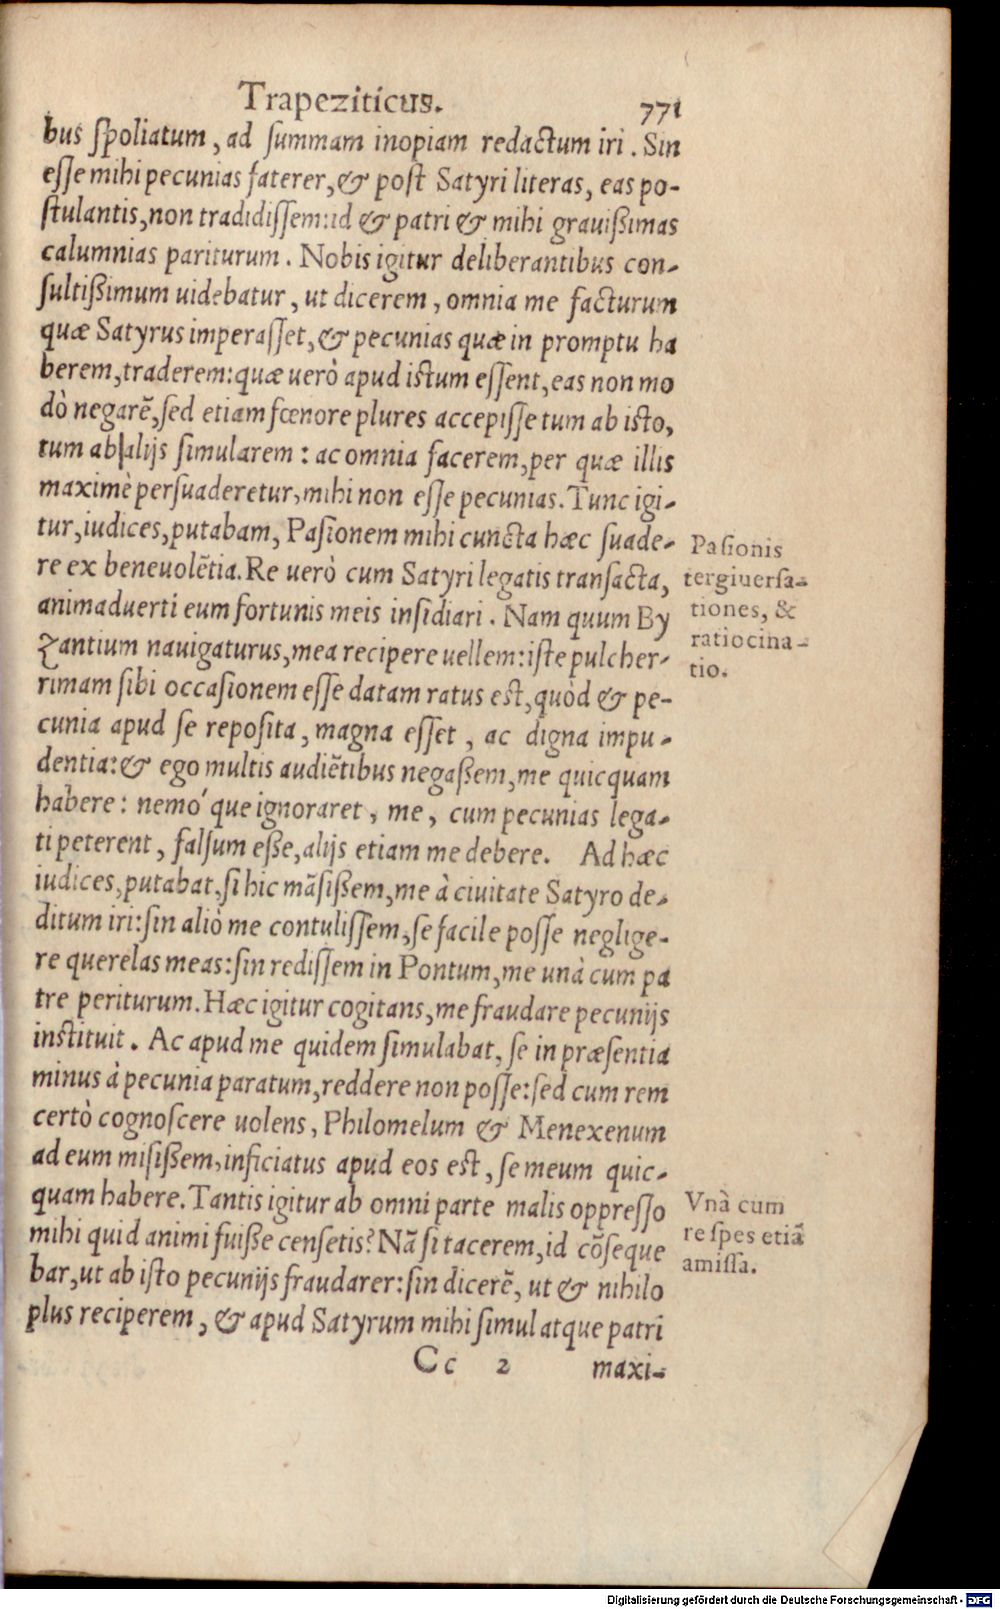 Trapeziticus. 771
bus spoliatum, ad summam inopiam redactum iri. Sin
esse mihi pecunias faterer, & post Satyri literas, eas po-
stulantis, non tradidissem: id & patri & mihi grauißimas
calumnias pariturum. Nobis igitur deliberantibus con-
sultißimum uidebatur, ut dicerem, omnia me facturum
quæ Satyrus imperasset, & pecunias quæ in promptu ha
berem, traderem: quæ uerò apud istum essent, eas non mo
dò negarē, sed etiam fœnore plures accepisse tum ab isto,
tum ab alijs simularem: ac omnia facerem, per quæ illis
maximè persuaderetur, mihi non esse pecunias. Tunc igi-
tur, iudices, putabam, Pasionem mihi cuncta hæc suade-
re ex beneuolētia. Re uerò cum Satyri legatis transacta,
animaduerti eum fortunis meis insidiari. Nam quum By
zantium nauigaturus, mea recipere uellem: iste pulcher-
rimam sibi occasionem esse datam ratus est, quòd & pe-
cunia apud se reposita, magna esset, ac digna impu-
dentia: & ego multis audiētibus negaßem, me quicquam
habere: nemó que ignoraret, me, cum pecunias lega-
ti peterent, falsum eße, alijs etiam me debere. Ad hæc
iudices, putabat, si hic māsißem, me à ciuitate Satyro de-
ditum iri: sin aliò me contulissem, se facile posse neglige-
re querelas meas: sin redissem in Pontum, me unà cum pa
tre periturum. Hæc igitur cogitans, me fraudare pecunijs
instituit. Ac apud me quidem simulabat, se in præsentia
minus à pecunia paratum, reddere non posse: sed cum rem
certò cognoscere uolens, Philomelum & Menexenum
ad eum misißem, inficiatus apud eos est, se meum quic-
quam habere. Tantis igitur ab omni parte malis oppresso
mihi quid animi fuiße censetis? Nā si tacerem, id cōseque
bar, ut ab isto pecunijs fraudarer: sin dicerē, ut & nihilo
plus reciperem, & apud Satyrum mihi simul atque patri
Cc 2 maxi-
Pasionis
tergiuersa-
tiones, &
ratiocina-
tio.
Vnà cum
re spes etiā
amissa.
Digitalisierung gefördert durch die Deutsche Forschungsgemeinschaft - DFG